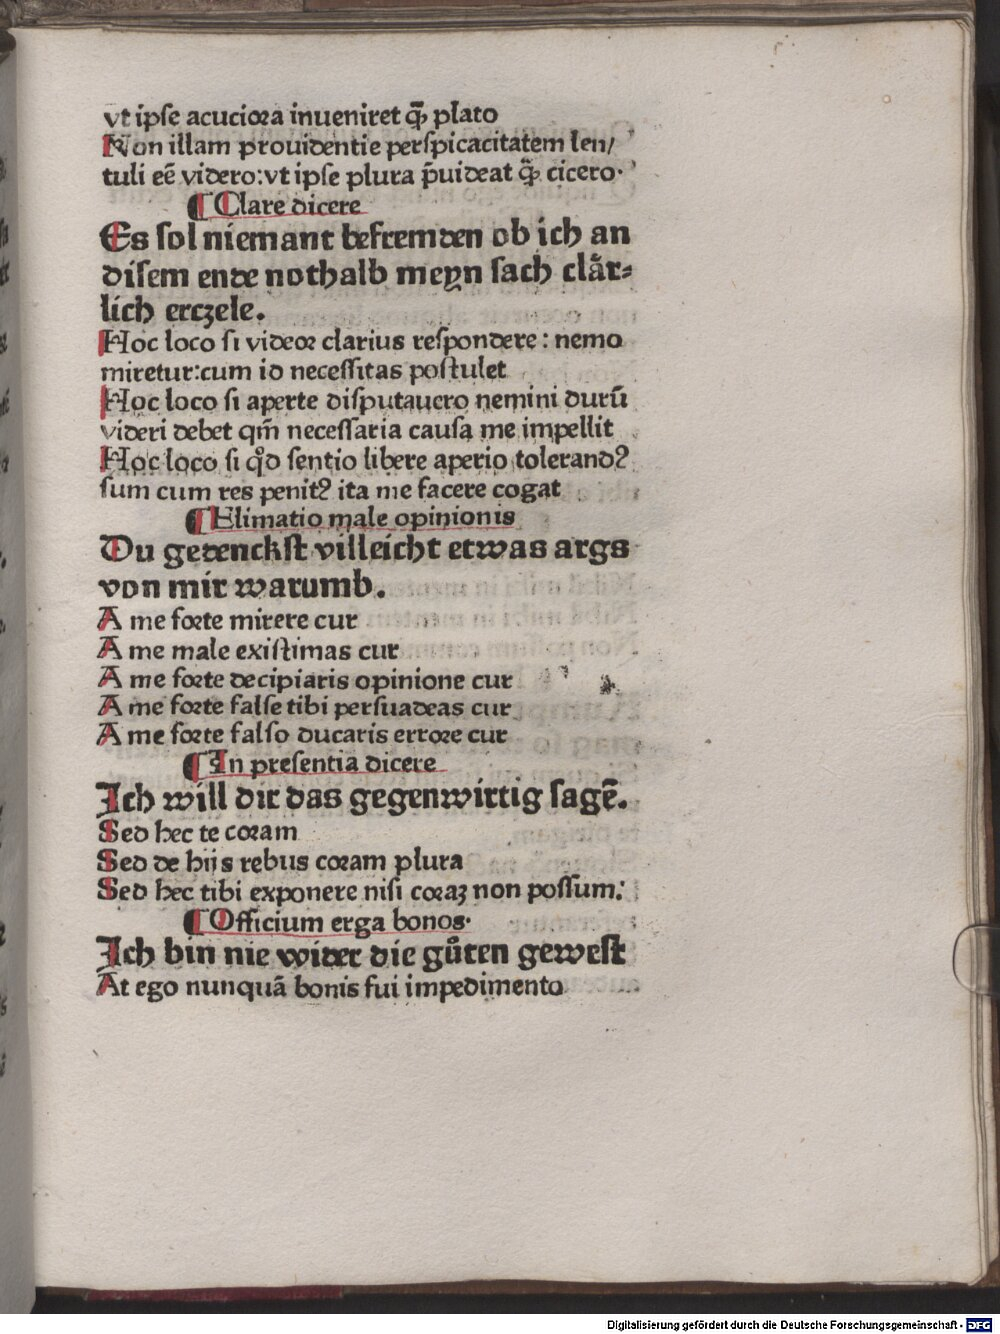 vt ipse acuciora inueniret q̃ plato
Non illam prouidentie perspicacitatem len/
tuli eē videro:vt ipse plura p̄uideat q̃ cicero·
¶ Clare dicere
Es sol niemant befremden ob ich an
disem ende nothalb meyn sach clår⸗
lich erczele.
Hoc loco si videor clarius respondere : nemo
miretur:cum id necessitas postulet
Hoc loco si aperte disputauero nemini durū
videri debet qm̄ necessaria causa me impellit
Hoc loco si qd̛ sentio libere aperio tolerandꝰ
sum cum res penitꝰ ita me facere cogat
¶ Elimatio male opinionis
Du gedenckst villeicht etwas args
von mir warumb.
A me forte mirere cur
A me male existimas cur
A me forte decipiaris opinione cur
A me forte false tibi persuadeas cur
A me forte falso ducaris errore cur
¶ In presentia dicere
Ich will dir das gegenwirtig sagē.
Sed hec te coram
Sed de hiis rebus coram plura
Sed hec tibi exponere nisi coraꝫ non possum:
¶ Officium erga bonos·
Ich bin nie wider die gůten gewest
At ego nunquā bonis fui impedimento
Digitalisierung gefördert durch die Deutsche Forschungsgemeinschaft - DFG